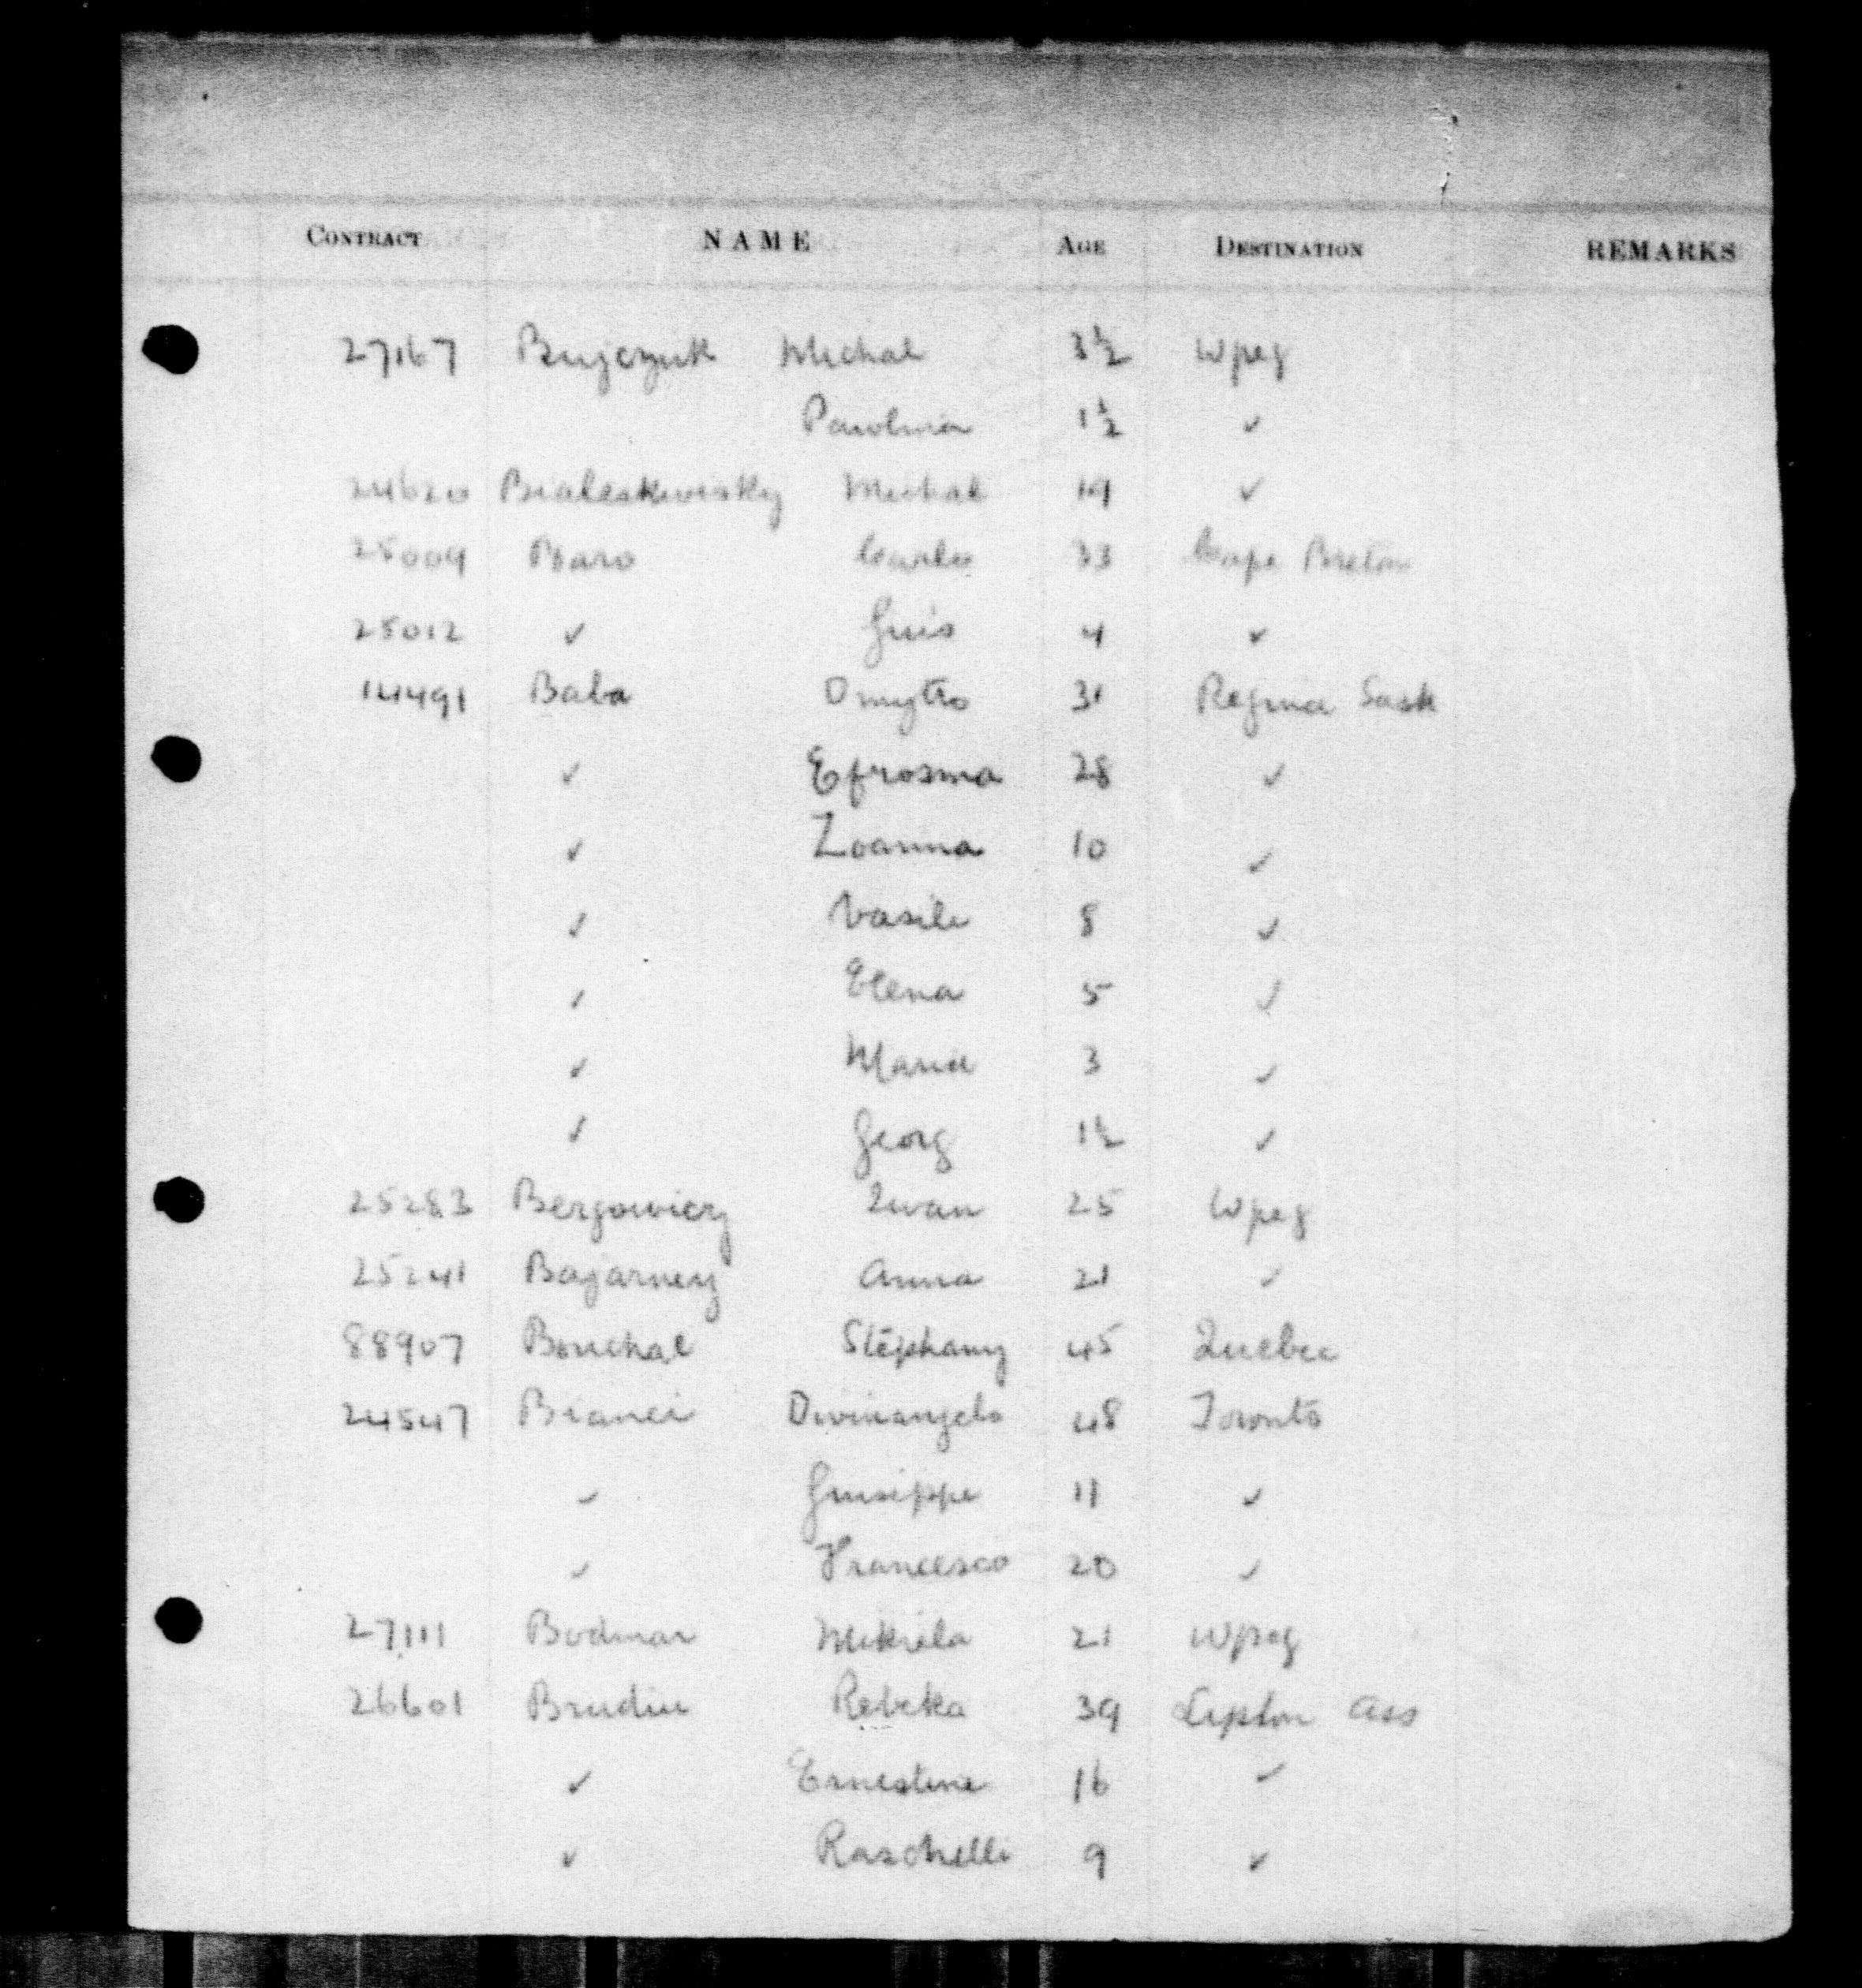 CONTRACT NAME AGE DESTINATION REMARKS
27167 Bujczuk Michal 3½ Wpeg
Pawlina 1½ ✓
24620 Bialeskwisky Michal 19 ✓
25009 Baro Carlo 33 Cape Breton
25012 ✓ Guis 4 ✓
14491 Baba Dmytro 31 Regina Sask
✓ Efrosina 28 ✓
✓ Zoanna 10 ✓
✓ Vasile 8 ✓
✓ Elena 5 ✓
✓ Maria 3 ✓
✓ Georg 1½ ✓
25283 Bergowicz Iwan 25 Wpeg
25241 Bajarney Anna 21 ✓
88907 Bouchal Stéphany 45 Quebec
24547 Bianci Divinangelo 48 Toronto
✓ Guiseppe 11 ✓
✓ Francesco 20 ✓
27111 Bodnar Mikiela 21 Wpeg
26601 Brudiu Rebeka 39 Lipton Ass
✓ Ernestine 16 ✓
✓ Raschelle 9 ✓